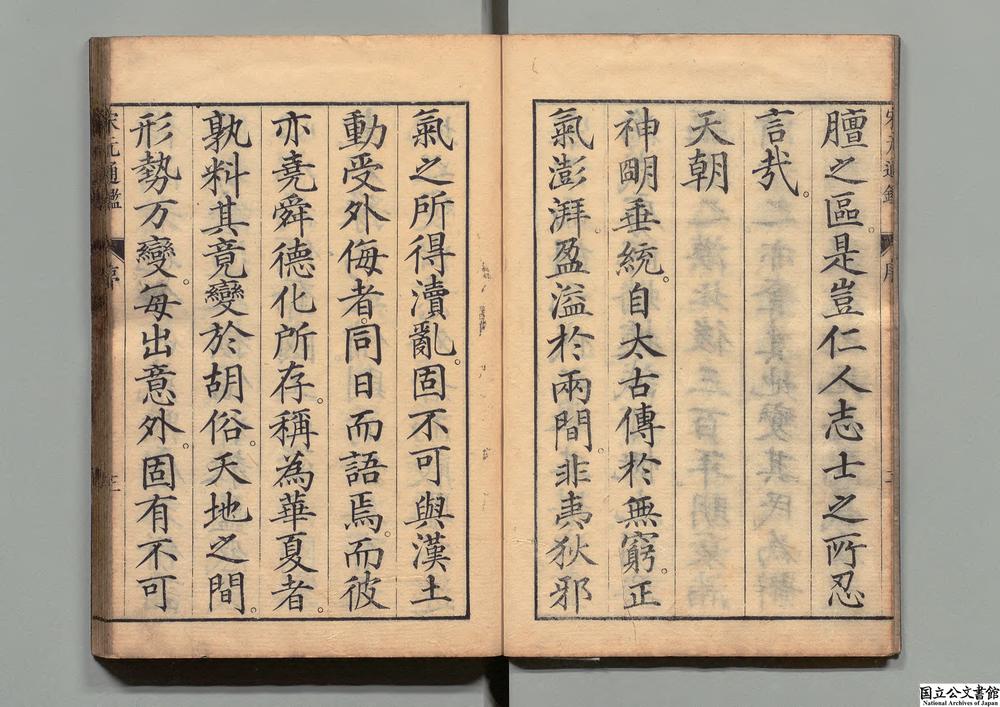 膻之區。是豈仁人志士之所忍
言哉。
天朝
神明垂統。自太古傳於無窮。正
氣澎湃。盈溢於兩間。非夷狄邪
氣之所得瀆亂。固不可與漢土
動受外侮者。同日而語焉。而彼
亦堯舜德化所存。稱為華夏者。
孰料其竟變於胡俗。天地之間。
形勢万變。每出意外。固有不可
宋元通鑑
序
三
国立公文書館
National Archives of Japan